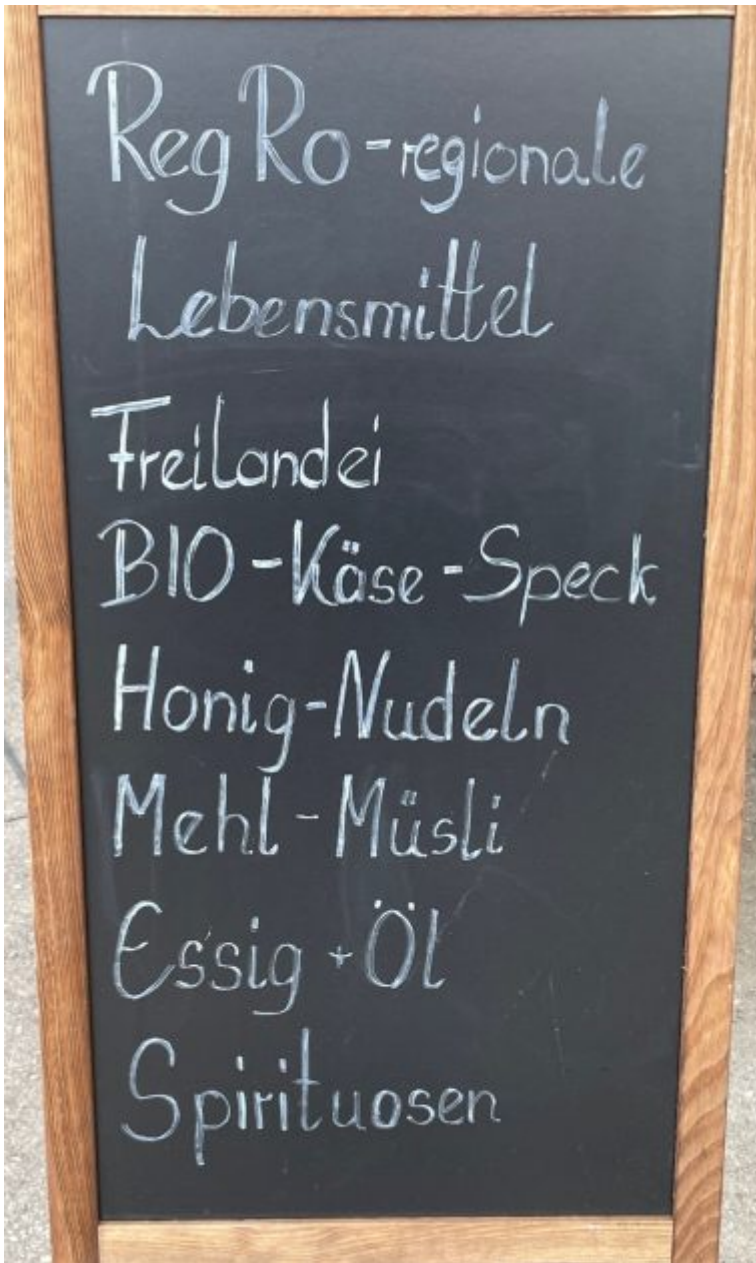 RegRo-regionale
Lebensmittel
Freilandei
BIO-Käse-Speck
Honig-Nudeln
Mehl-Müsli
Essig + Öl
Spirituosen